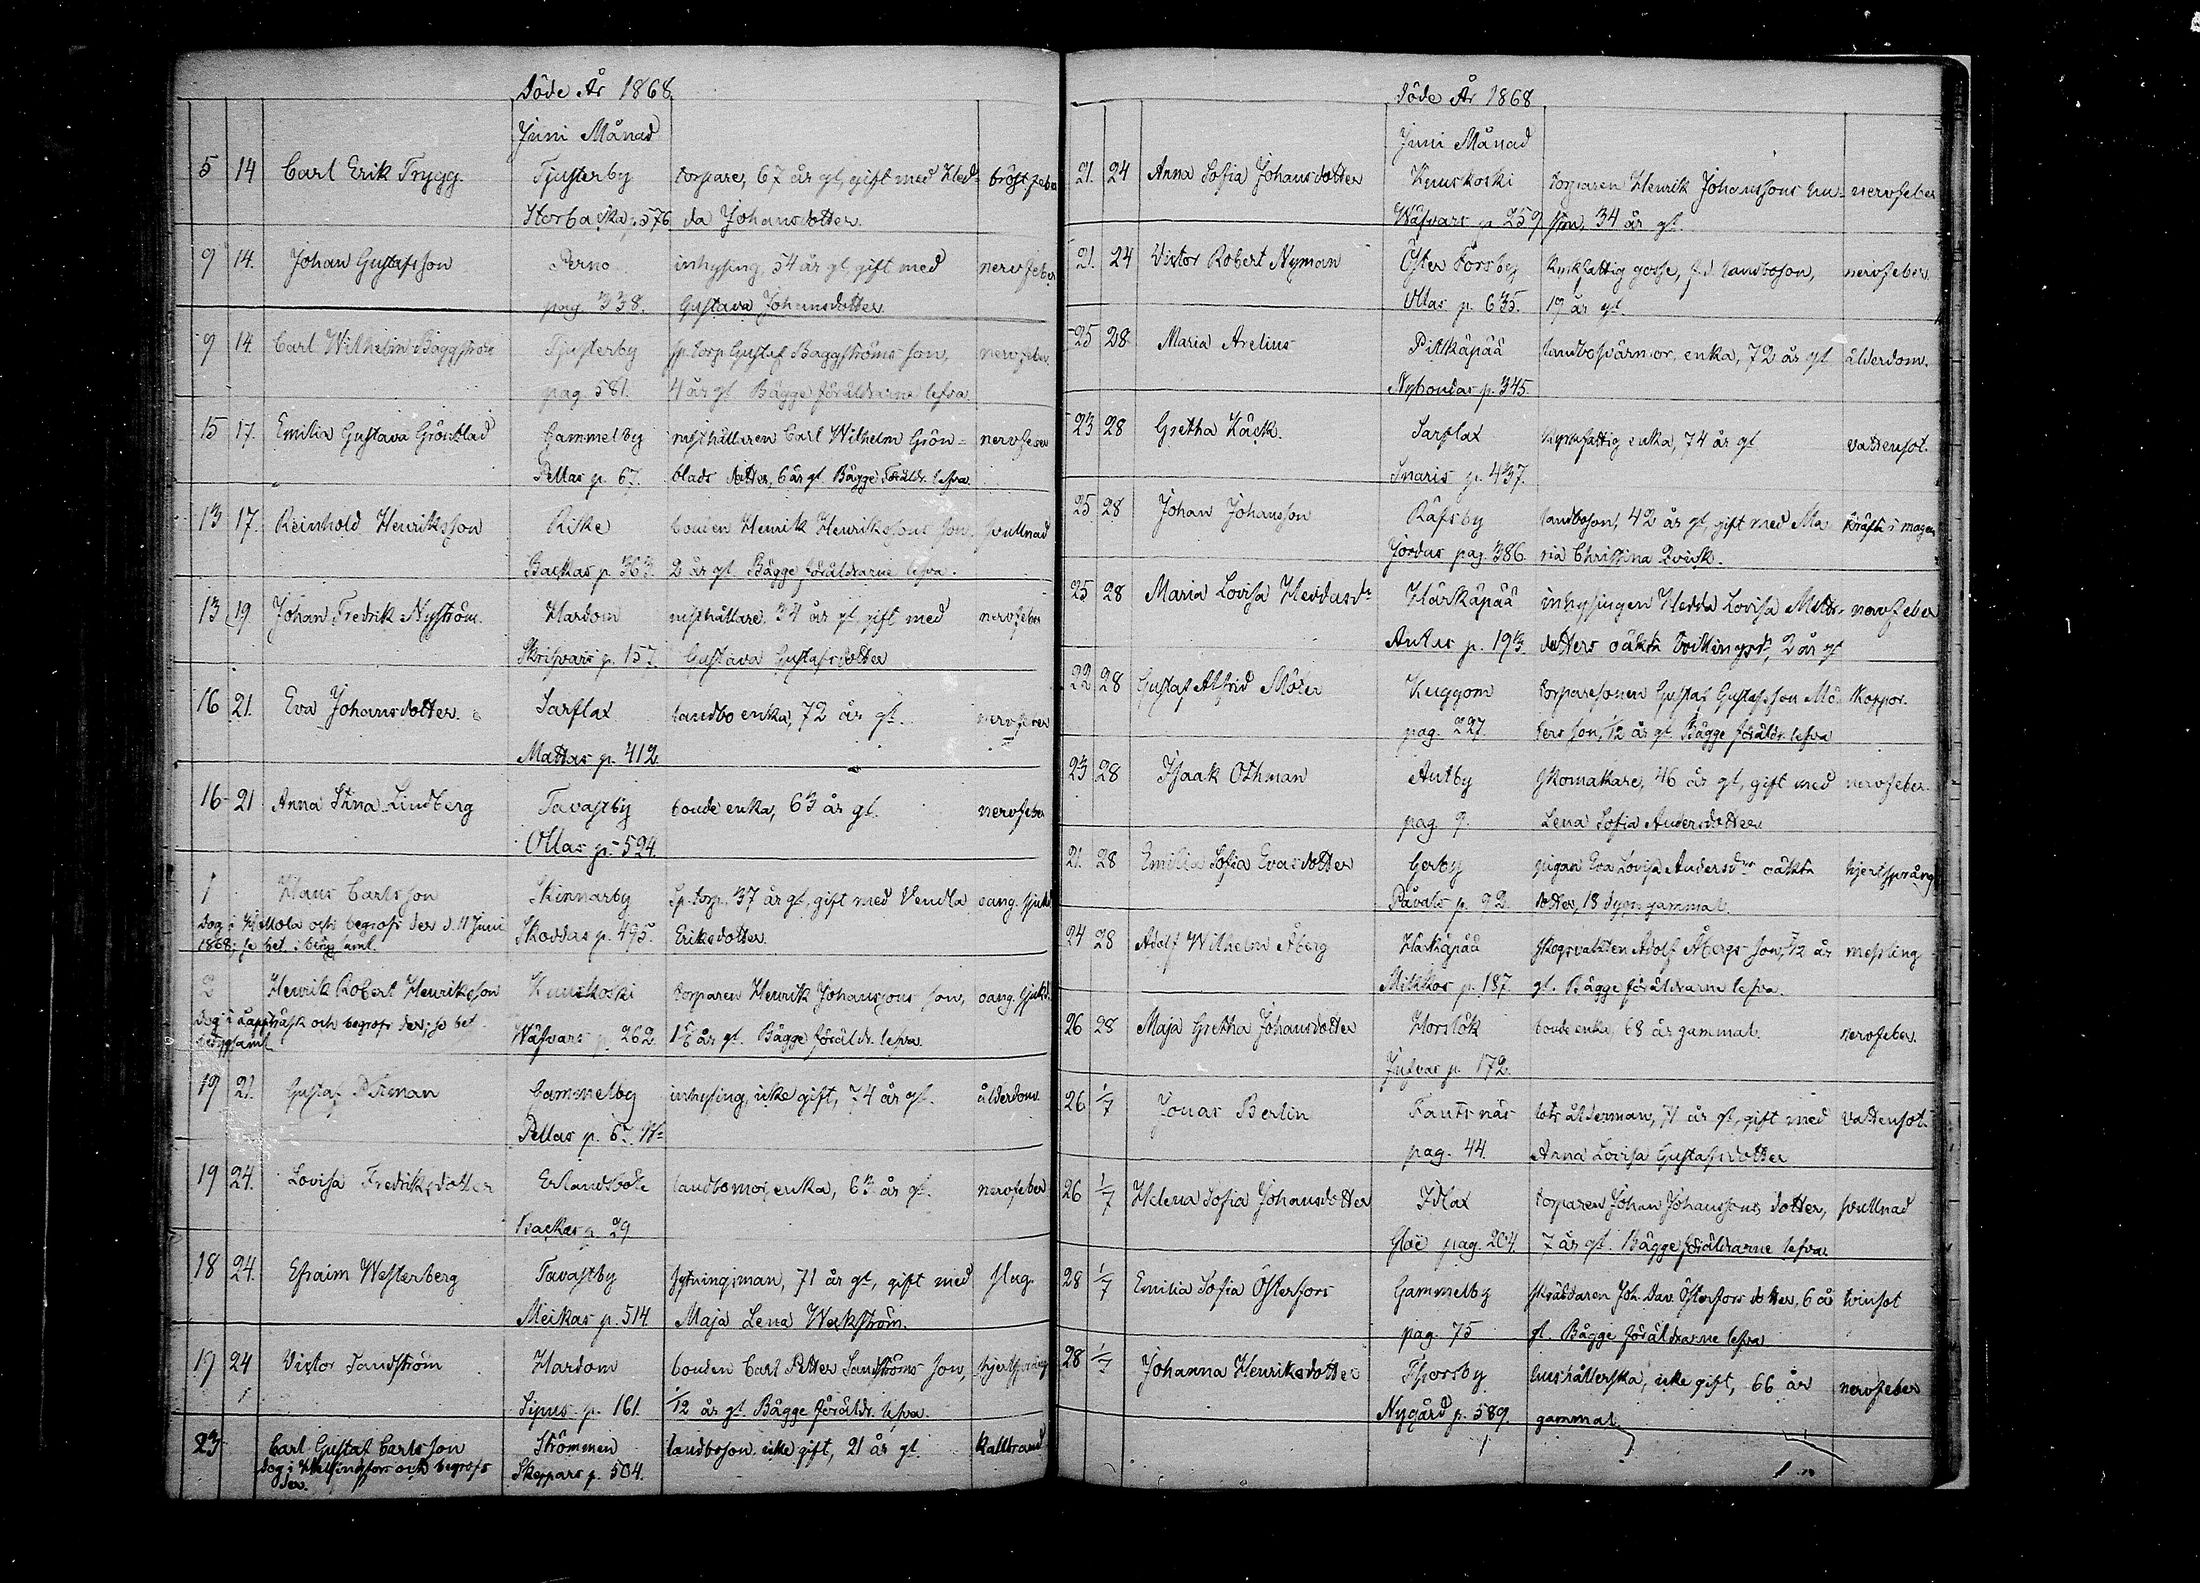 Döde År 1868
Juni Månad
5 14 Carl Erik Trygg. Tjusterby torpare, 67 år gl, gift med Hed- bröstfeber
Storbacka p. 576 da Johansdotter.
9 14. Johan Gustafsson Perno inhysing, 54 år gl, gift med nervfeber
pag. 338. Gustava Johansdotter
9 14. Carl Wilhelm Baggström Tjusterby sp. torp. Gustaf Baggströms son, nervfeber
pag. 581. 4 år gl. Bägge föräldrarne lefva
15 17. Emilia Gustava Grönblad Gammelby rusthållaren Carl Wilhelm Grön- nervfeber
Pellas p. 67. blads dotter, 6 år gl. Bägge föräldr. lefva
13 17. Reinhold Henriksson Riske bonden Henrik Henrikssons son, svullnad
Backas p. 363. 2 år gl. Bägge föräldrarne lefva.
13 19 Johan Fredrik Nyström. Hardom rusthållare, 34 år gl, gift med nervfeber
Skrifvars p. 157. Gustava Gustafsdotter
16 21. Eva Johansdotter. Sarflax landbo enka, 72 år gl. nervfeber
Mattas p. 412.
16 21 Anna Stina Lindberg Tavastby bonde enka, 63 år gl. nervfeber
Ollas p. 524.
1 Klaus Carlsson Skinnarby sp. torp. 37 år gl, gift med Vendla oang. sjukd.
dog i och begrofs der d. 11 Juni Skoddas p. 495. Eriksdotter.
1868, se bet. i
2 Henrik Robert Henriksson Kuuskoski torparen Henrik Johanssons son, oang. sjukd.
dog i Lappträsk och begrofs der, se bet. Wäfvars p. 262. 1 5/6 år gl. Bägge föräldr. lefva
19 21. Gustaf Gammelby inhysing, icke gift, 74 år gl. ålderdom
Pellas p. 67.
19 24. Lovisa Fredriksdotter Erlandsböle landbomor, enka, 63 år gl. nervfeber
Backas p. 29
18 24. Efraim Westerberg Tavastby sytningsman, 71 år gl, gift med slag.
Meikas p. 514. Maja Lena Weckström.
17 24 Victor Sandström Hardom bonden Carl Petter Sandströms son, hjertsprång
Sipus p. 161. 1/12 år gl. Bägge föräldr. lefva.
23 Carl Gustaf Carlsson Strömmen landboson, icke gift, 21 år gl kallbrand
dog i Helsingfors och begrofs Skeppars p. 504.
der.
Döde År 1868
Juni Månad
21. 24 Anna Sofia Johansdotter Kuuskoski torparen Henrik Johanssons hu- nervfeber
Wäfvars p. 259 stru, 34 år gl.
21. 24 Victor Robert Nyman Öster Forsby, kyrkfattig gosse, f.d. landboson, nervfeber
Ollas p. 635. 19 år gl.
25 28 Maria Arelius Pitkäpää landbosvärmor, enka, 72 år gl ålderdom.
Nybondas p. 345.
23 28 Gretha Käck. Sarflax kyrkfattig enka, 74 år gl vattensot.
Snaris p. 437.
25 28 Johan Johansson Räfsby landboson, 42 år gl, gift med Ma- kräfta i magen
Jordas pag. 386. ria Christina Qvick.
25 28 Maria Lovisa Heddasdr Härkäpää inhysingen Hedda Lovisa Matts- nervfeber
p. 193. dotters oäkta tvillingsdr, 2 år gl
22 28 Gustaf Alfrid Kuggom torparesonen Gustaf Gustafsson koppor.
pag. 227. son, 1/12 år gl. Bägge föräldr. lefva
23 28 Isaak Othman Antby skomakare, 46 år gl, gift med nervfeber
pag. 9. Lena Sofia Andersdotter
21. 28 Emilia Sofia Evasdotter Gerby pigan Eva Lovisa Andersdrs oäkta hjertsprång
Påvals p. 92. dotter, 18 dygn gammal.
24 28 Adolf Wilhelm Åberg Härkäpää skogsvakten Adolf Åbergs son, år messling
Mikkos p. 187. gl. Bägge föräldrarne lefva.
26 28 Maja Gretha Johansdotter Horslök bonde enka, 68 år gammal. nervfeber.
p. 172.
26 1/7 Jonas Berlin Fantsnäs lots ålderman, 71 år gl, gift med vattensot.
pag. 44. Anna Lovisa Gustafsdotter
26 1/7 Helena Sofia Johansdotter Idlax torparen Johan Johanssons dotter, svullnad
pag. 204. 7 år gl. Bägge föräldrarne lefva.
28 1/7 Emilia Sofia Österfors Gammelby skräddaren Joh. Dav. Österfors dotter, 6 år tvinsot
pag. 75 gl. Bägge föräldrarne lefva
28 1/7 Johanna Henriksdotter Thorsby hushållerska, icke gift, 66 år nervfeber
Nygård p. 589. gammal.